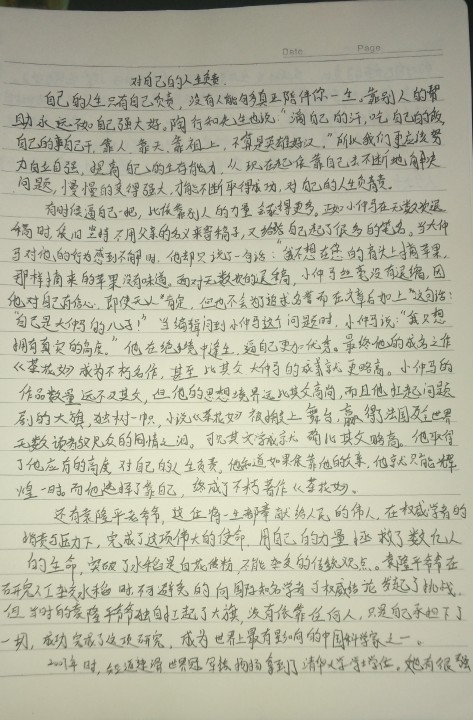 Date Page
对自己的人生负责
自己的人生只有自己负责，没有人能够真正陪伴你一生。靠别人的帮
助永远不如自己强大好。陶行知先生也说："滴自己的汗，吃自己的饭
自己的事自己干，靠人靠天靠祖上，不算是英雄好汉。"所以我们更应该努
力自立自强，提高自己的生存能力，从现在起依靠自己去不断地解决
问题，慢慢的变得强大，才能不断取得成功，对自己的人生负责。
有时候逼自己一把，比依靠别人的力量会获得更多。正如小仲马在无数次退
稿时依旧坚持不用父亲的名义来寄稿子，又给自己起了很多的笔名。当大仲
马对他的行为感到不解时，他却只说了一句话："我不想在您的肩头上摘苹果，
那样摘来的苹果没有味道。面对无数次的退稿，小仲马丝毫没有退缩，因
他对自己有信心，即使无人肯定，但也不会为追求名誉而在文章后加上"这句话：
"自己是大仲马的儿子！"当编辑问到小仲马这个问题时，小仲马说："我只想
拥有真实的高度。"他在绝境中逢生，逼自己更加优秀。最终他的成名之作
《茶花女》成为不朽名作，甚至比其父大仲马的成就更略高。小仲马的
作品数量远不及其父，但他的思想境界远比其父高尚，而且他扛起问题
剧的大旗，独树一帜，小说《茶花女》被搬上舞台，赢得了法国及全世界
无数读者及观众的同情之泪。可见其文学成就稍比其父略高。他取得
了他应有的高度，对自己的人生负责。他知道如果依靠他的父亲，他就只能辉
煌一时。而他选择了靠自己，练成了不朽著作《茶花女》。
还有袁隆平老爷爷，这位将一生都奉献给人民的伟人，在权威学者的
嘲责与压力下，完成了这项伟大的使命，用自己的力量拯救了数亿人
的生命，突破了水稻是自花传粉，不能杂交的传统观点。袁隆平爷爷在
研究人工杂交水稻时不可避免的向国际知名学者权威结论发起了挑战。
但当时的袁隆平爷爷独自扛起了大旗，没有依靠任何人，只是自己承担下了
一切，成功完成了这项研究，成为世界上最有影响的中国科学家之一。
2001年时，短道速滑世界冠军杨扬拿到了清华大学学士学位。她有很强